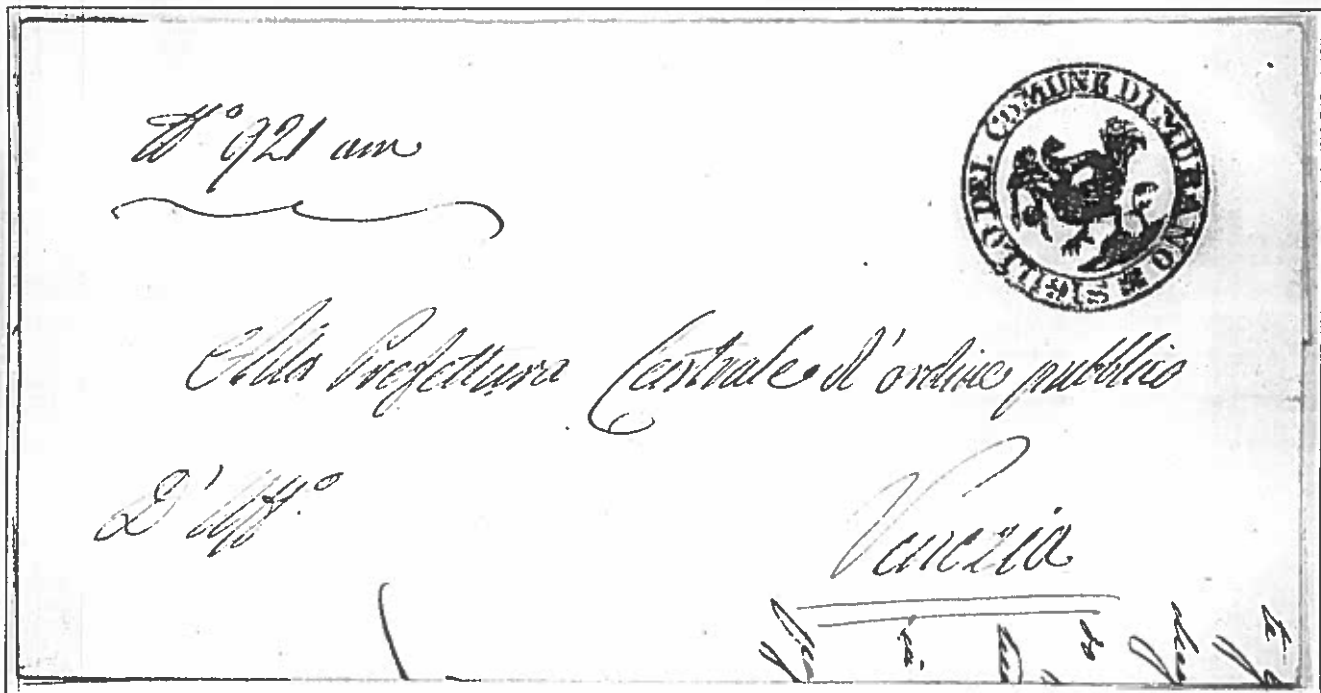 N° 921 am
SIGILLO DEL COMUNE DI MURANO
Alla Prefettura Centrale d'ordine pubblico
D'Uff.°
Venezia